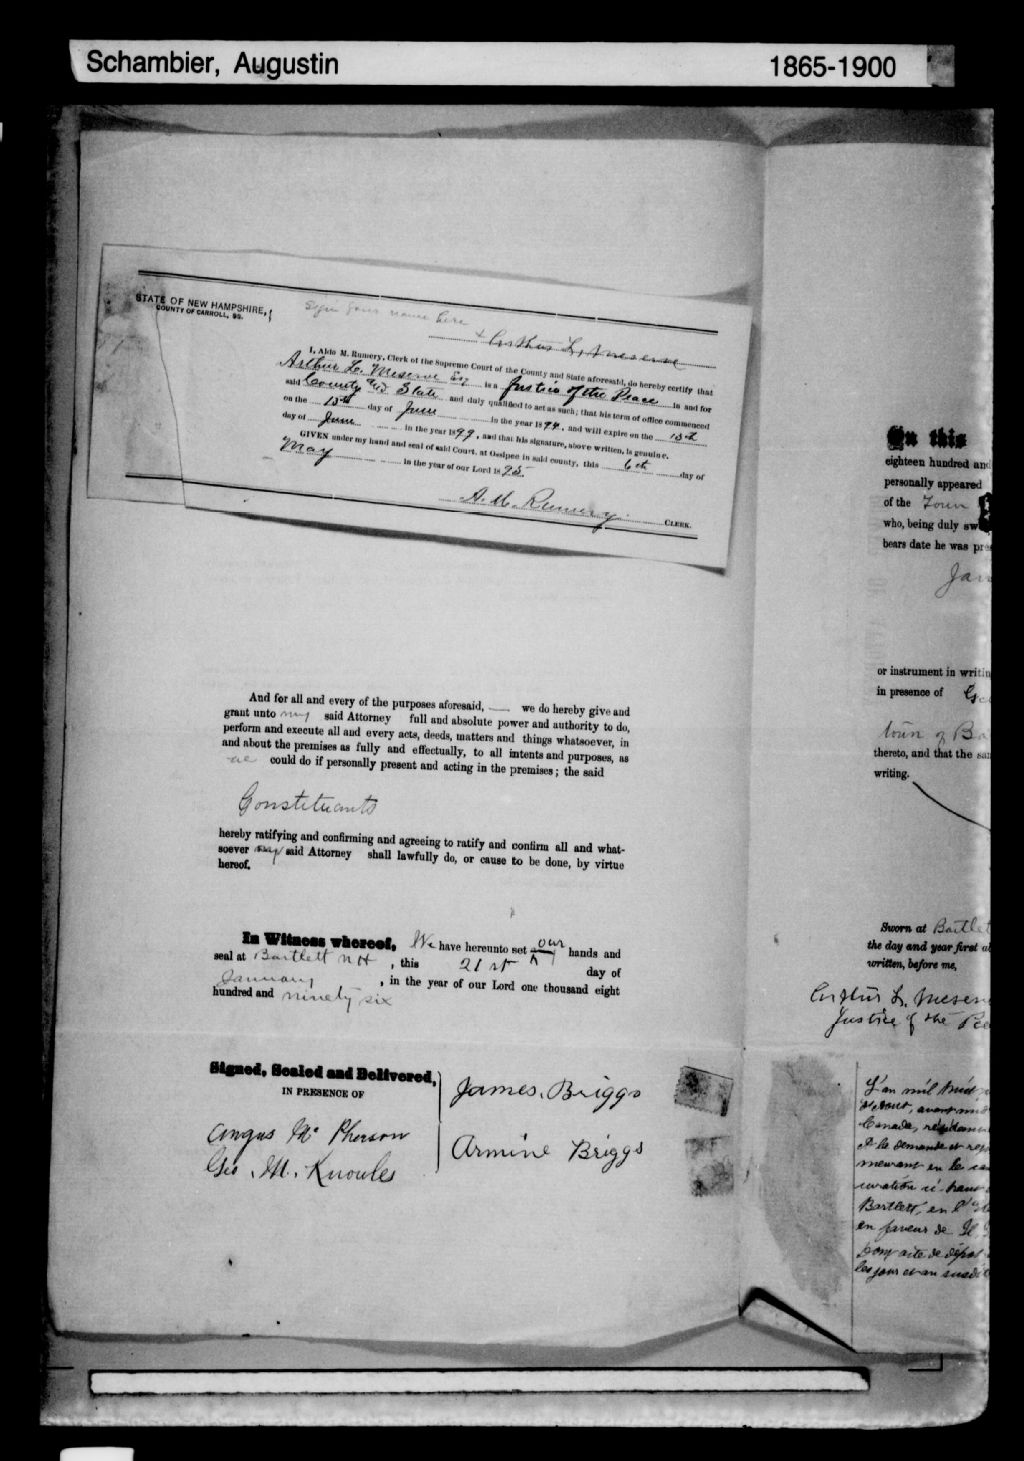 Schambier, Augustin 1865-1900
STATE OF NEW HAMPSHIRE,
COUNTY OF CARROLL, SS.
Sign your name here
Arthur L. Meserve
I, Aldo M. Rumery, Clerk of the Supreme Court of the County and State aforesaid, do hereby certify that
Arthur L. Meserve Esq is a Justice of the Peace in and for
said County and State and duly qualified to act as such; that his term of office commenced
on the 15th day of June in the year 1894, and will expire on the 15th
day of June in the year 1899, and that his signature, above written, is genuine.
GIVEN under my hand and seal of said Court, at Ossipee in said county, this 6th day of
May in the year of our Lord 1895
A. M. Rumery CLERK.
And for all and every of the purposes aforesaid, we do hereby give and
grant unto my said Attorney full and absolute power and authority to do,
perform and execute all and every acts, deeds, matters and things whatsoever, in
and about the premises as fully and effectually, to all intents and purposes, as
we could do if personally present and acting in the premises; the said
Constituants
hereby ratifying and confirming and agreeing to ratify and confirm all and what-
soever my said Attorney shall lawfully do, or cause to be done, by virtue
hereof.
In Witness whereof, We have hereunto set our hands and
seal at Bartlett NH, this 21st day of
January, in the year of our Lord one thousand eight
hundred and ninety six
Signed, Sealed and Delivered,
IN PRESENCE OF
James Briggs
Angus McPherson
Armine Briggs
Geo. M. Knowles
On this
eighteen hundred and
personally appeared
of the Town
who, being duly sw
bears date he was pre
Jam
or instrument in writin
in presence of Geo
town of Ba
thereto, and that the sam
writing.
Sworn at Bartlet
the day and year first a
written, before me,
Arthur L. Meserv
Justice of the Pea
L'an mil huit
d'Aout, avant midi
Canada, résidant
A la demande et req
meurant en le
curation ci-haut
Bartlett, en l'
en faveur de
pour acte de dépot
les jour et an susdit